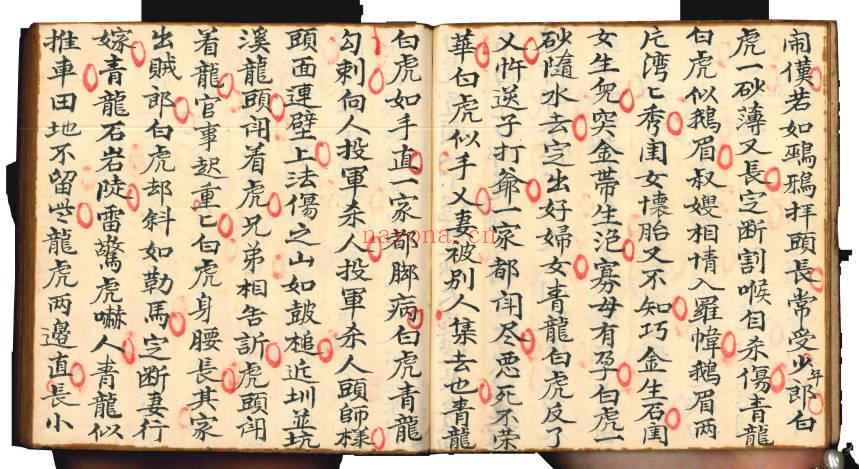 闹僕若如鵶鴉拜頭長常受少年郎白
虎一砂薄又長定断割喉自杀傷青龍
白虎似鵝眉叔嫂相情入羅幃鵝眉两
片湾匕秀闺女懷胎又不知巧金生石闺
女生皃突金帶生淴寡母有孕白虎一
砂隨水去定出好婦女青龍白虎反了
又忤送子打爺一家都闹尽恶死不荣
華白虎似手又妻被别人集去也青龍
白虎如手直一家都脚病白虎青龍
勾刺向人投軍杀人投軍杀人頭師樣
頭面連壁上法傷之山如皷槌近圳並坑
溪龍頭闹着虎兄弟相告訴虎頭闹
着龍官事起重匕白虎身腰長其家
出賊郎白虎却斜如勒馬定断妻行
嫁青龍石岩陡雷驚虎嚇人青龍似
推車田地不留些龍虎两邊直長小
nayona.cn